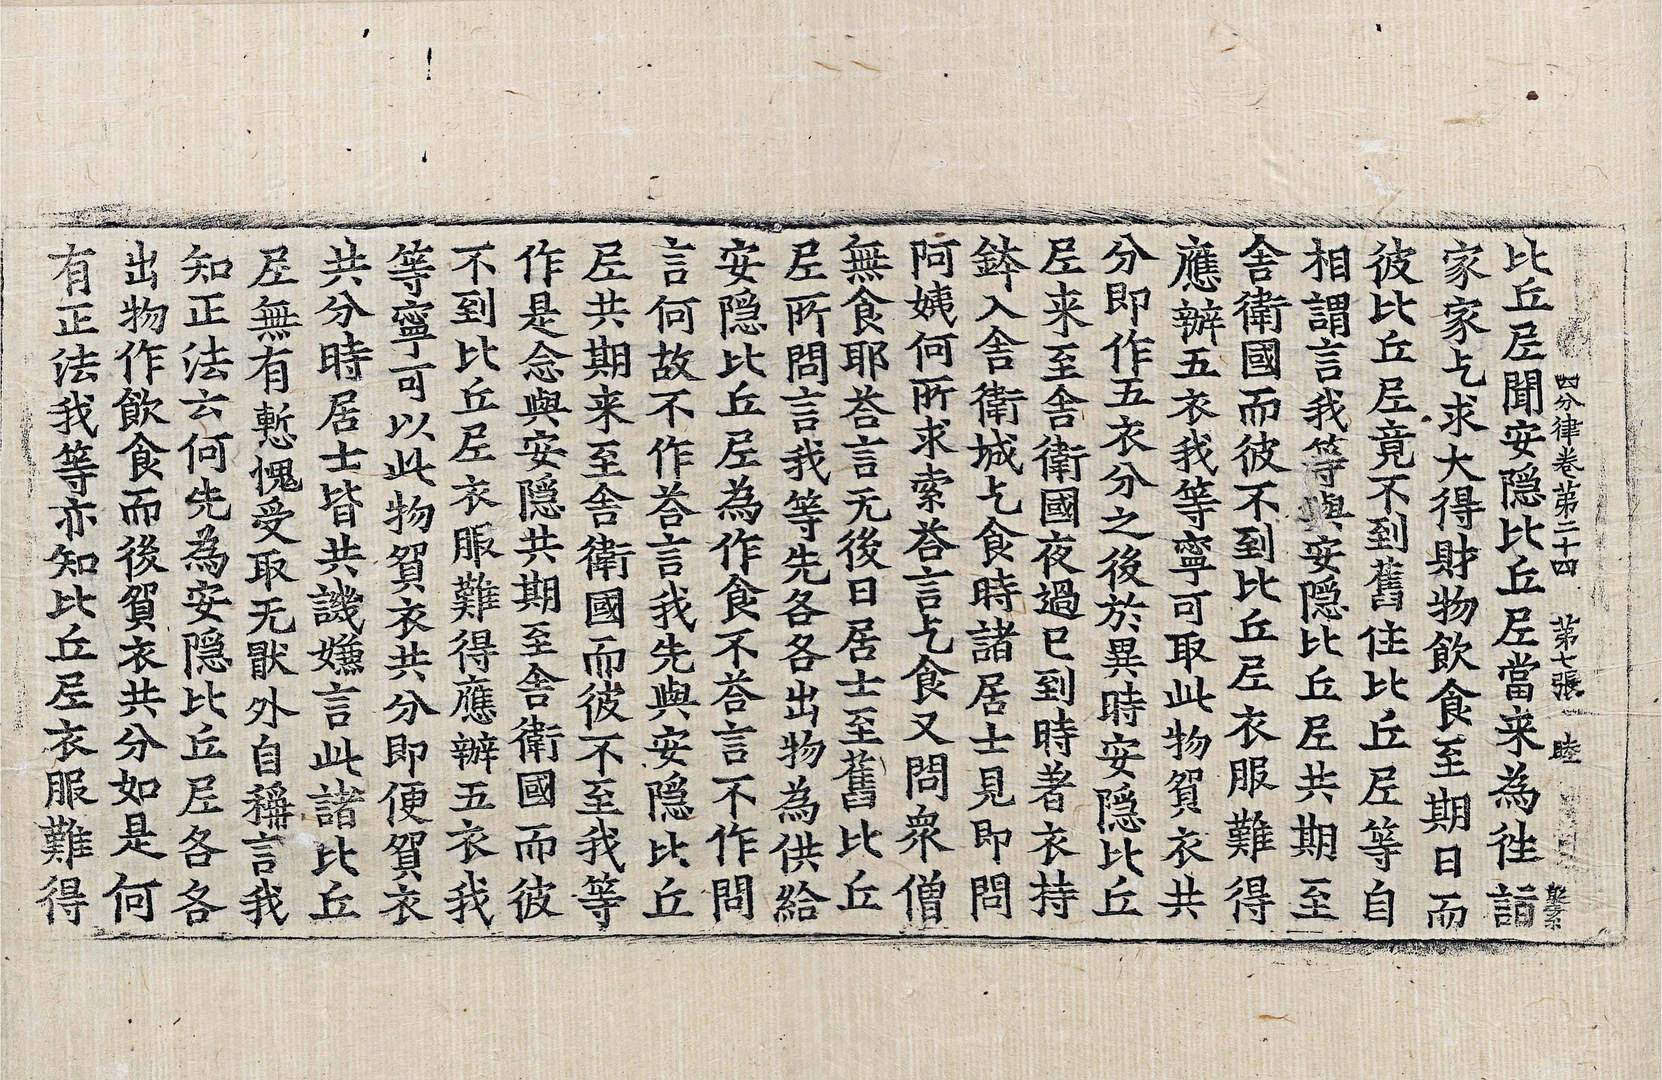 四分律卷第二十四 第七張 睦
比丘尼聞安隱比丘尼當来為往詣
家家乞求大得財物飲食至期日而
彼比丘尼竟不到舊住比丘尼等自
相謂言我等與安隱比丘尼共期至
舍衛國而彼不到比丘尼衣服難得
應辦五衣我等寧可取此物貿衣共
分即作五衣分之後於異時安隱比丘
尼来至舍衛國夜過已到時著衣持
鉢入舍衛城乞食時諸居士見即問
阿姨何所求索荅言乞食又問衆僧
無食耶荅言无後日居士至舊比丘
尼所問言我等先各各出物為供給
安隱比丘尼為作食不荅言不作問
言何故不作荅言我先與安隱比丘
尼共期来至舍衛國而彼不至我等
作是念與安隱共期至舍衛國而彼
不到比丘尼衣服難得應辦五衣我
等寧可以此物貿衣共分即便貿衣
共分時居士皆共譏嫌言此諸比丘
尼無有慙愧受取无猒外自稱言我
知正法云何先為安隱比丘尼各各
出物作飲食而後貿衣共分如是何
有正法我等亦知比丘尼衣服難得